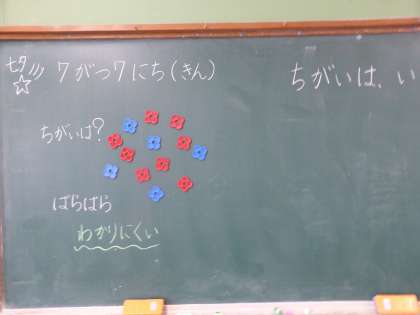 七夕
7がつ7にち(きん)
ちがいは、い
ちがいは?
ばらばら
わかりにくい